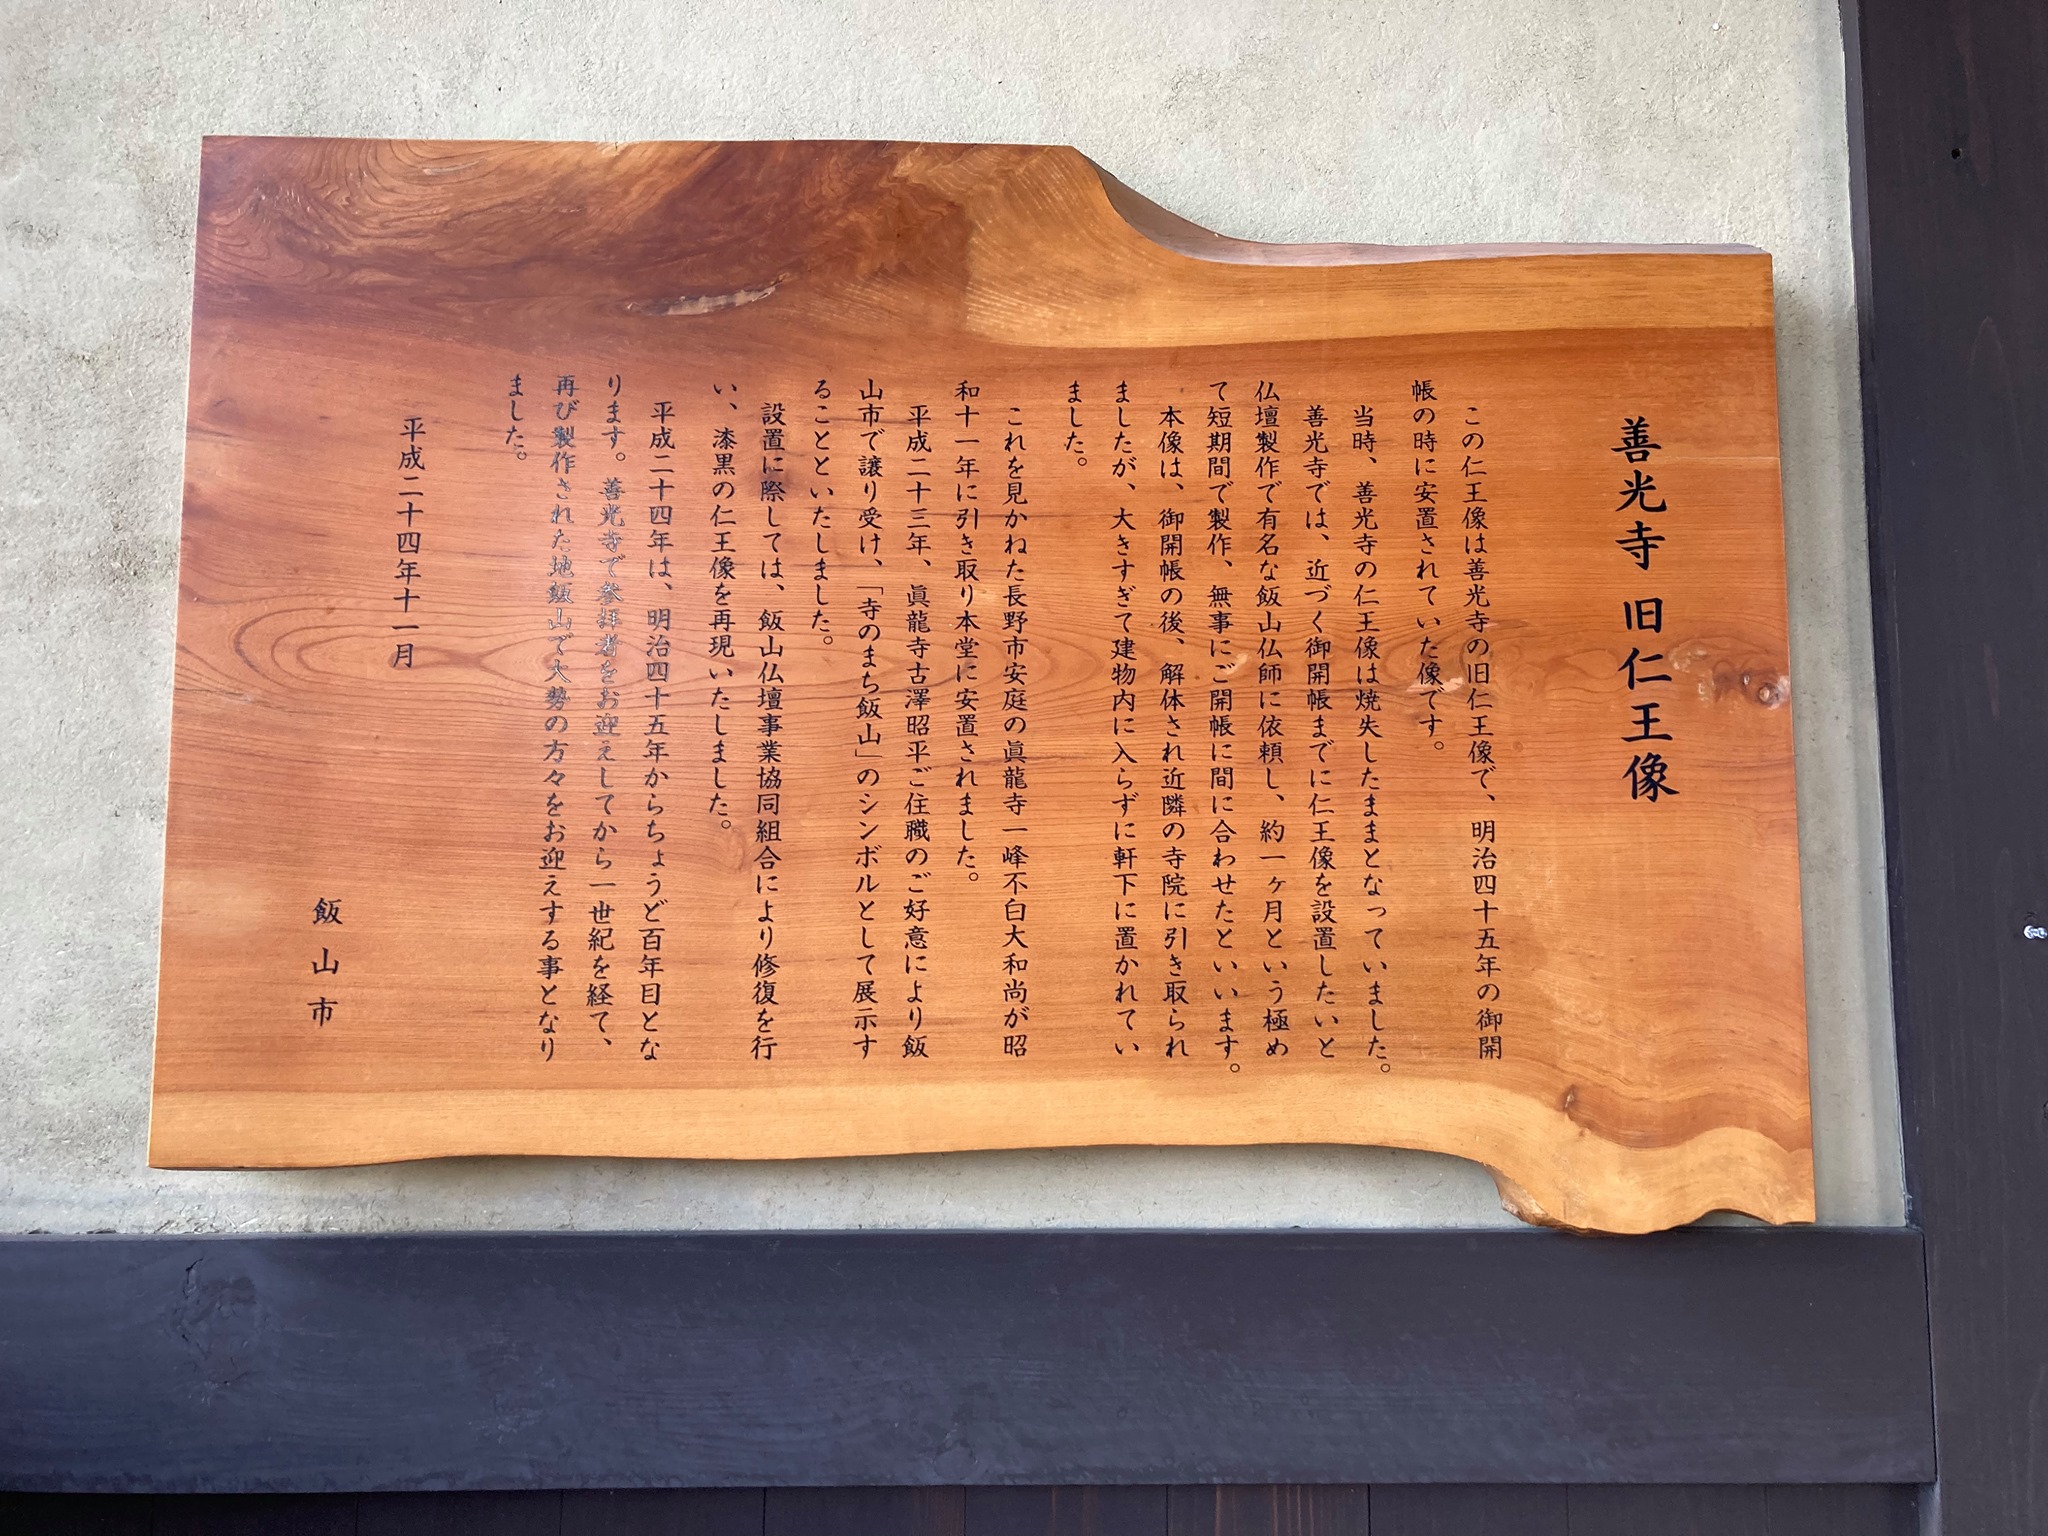 善光寺 旧仁王像
この仁王像は善光寺の旧仁王像で、明治四十五年の御開
帳の時に安置されていた像です。
当時、善光寺の仁王像は焼失したままとなっていました。
善光寺では、近づく御開帳までに仁王像を設置したいと
仏壇製作で有名な飯山仏師に依頼し、約一ヶ月という極め
て短期間で製作、無事にご開帳に間に合わせたといいます。
本像は、御開帳の後、解体され近隣の寺院に引き取られ
ましたが、大きすぎて建物内に入らずに軒下に置かれてい
ました。
これを見かねた長野市安庭の眞龍寺一峰不白大和尚が昭
和十一年に引き取り本堂に安置されました。
平成二十三年、眞龍寺古澤昭平ご住職のご好意により飯
山市で譲り受け、「寺のまち飯山」のシンボルとして展示す
ることといたしました。
設置に際しては、飯山仏壇事業協同組合により修復を行
い、漆黒の仁王像を再現いたしました。
平成二十四年は、明治四十五年からちょうど百年目とな
ります。善光寺で参拝者をお迎えしてから一世紀を経て、
再び製作された地飯山で大勢の方々をお迎えする事となり
ました。
平成二十四年十一月
飯山市